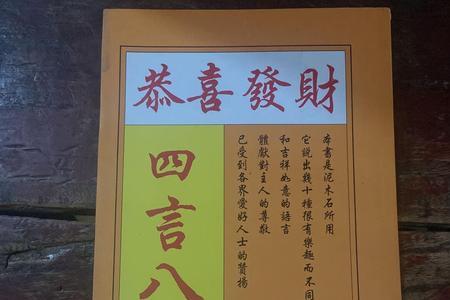 恭喜發財
本書是泥木石所用
它說出幾十種很有樂趣而不同
和吉祥如意的語言
體獻對主人的尊敬
已受到各界愛好人士的贊揚
四言八